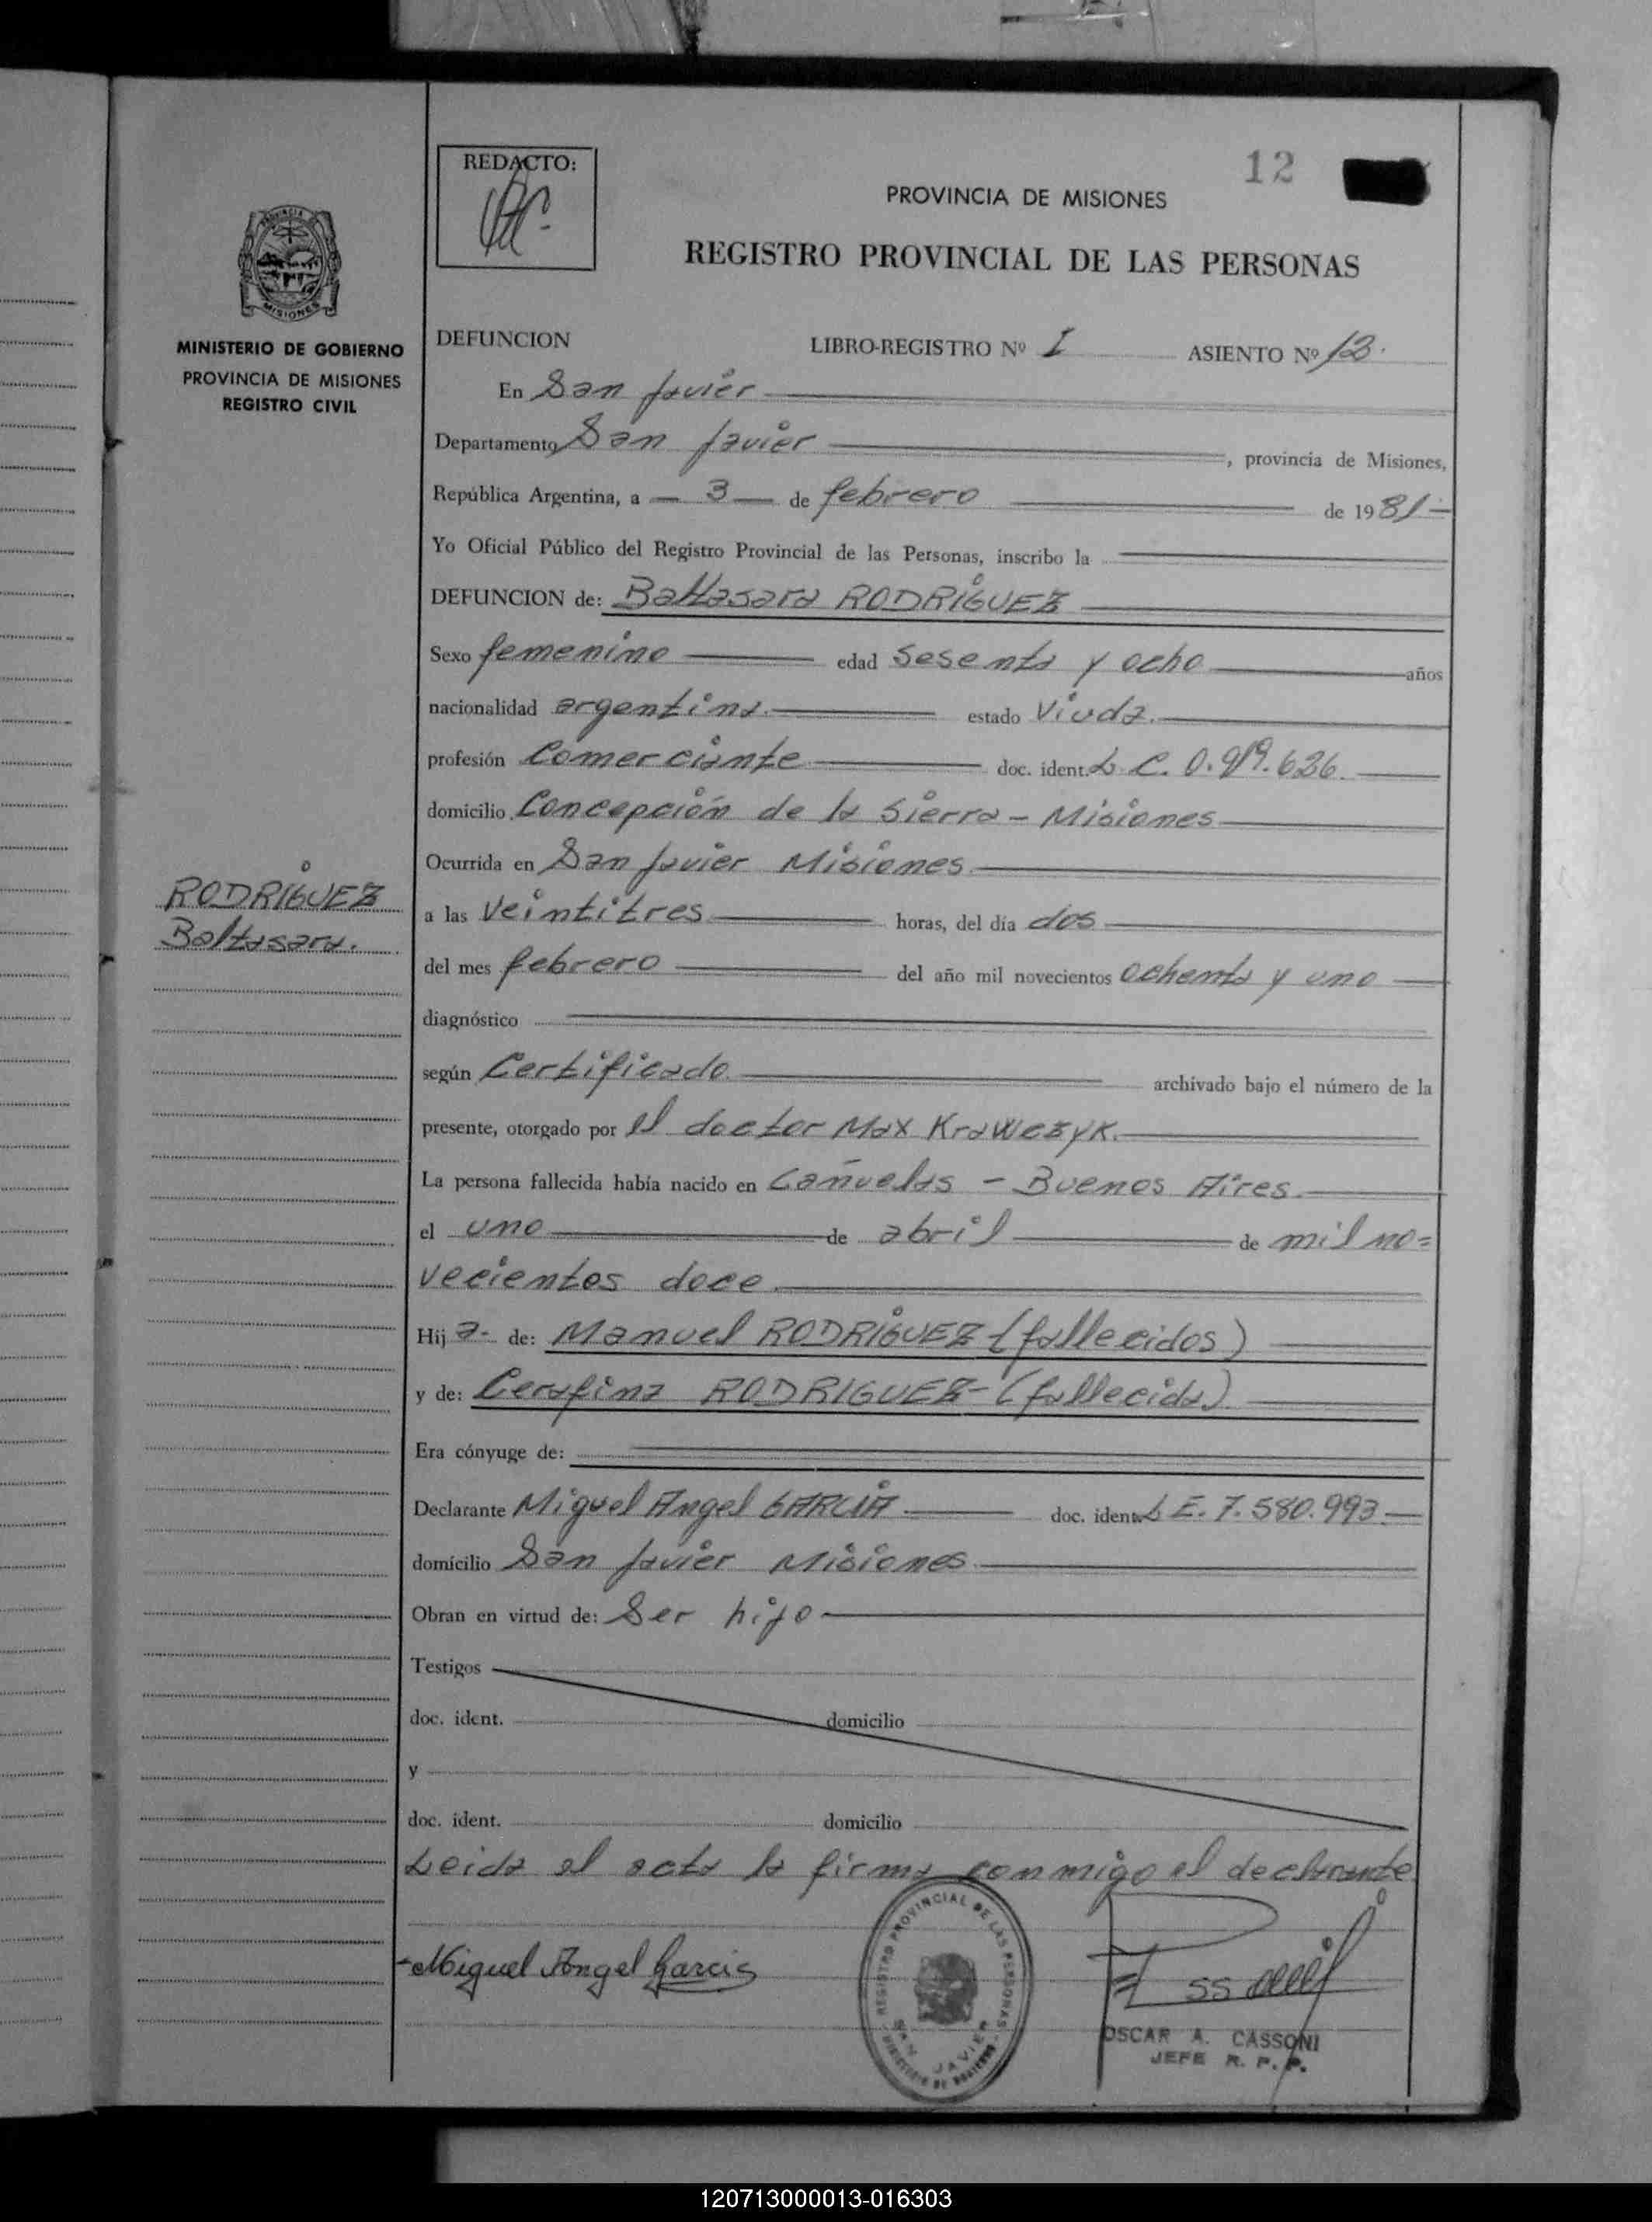 12
REDACTO:
PROVINCIA DE MISIONES
REGISTRO PROVINCIAL DE LAS PERSONAS
MISIONES
MINISTERIO DE GOBIERNO
PROVINCIA DE MISIONES
REGISTRO CIVIL
DEFUNCION LIBRO-REGISTRO Nº I ASIENTO Nº
En San Javier
Departamento San Javier, provincia de Misiones,
República Argentina, a - 3 - de febrero de 1981-
Yo Oficial Público del Registro Provincial de las Personas, inscribo la
DEFUNCION de: Baltasara RODRIGUEZ
Sexo femenino edad Sesenta y ocho años
nacionalidad argentina. estado Viuda.
profesión Comerciante doc. ident. L. C. 0.919.626.
domicilio Concepción de la Sierra - Misiones
Ocurrida en San Javier Misiones
RODRIGUEZ
Baltasara.
a las Veintitres horas, del día dos
del mes febrero del año mil novecientos ochenta y uno
diagnóstico
según Certificado archivado bajo el número de la
presente, otorgado por el doctor Max Krawczyk.
La persona fallecida había nacido en Cañuelas - Buenos Aires.
el uno de abril de mil no=
vecientos doce
Hij a- de: Manuel RODRIGUEZ - (fallecidos)
y de: Cerafina RODRIGUEZ - (fallecida)
Era cónyuge de:
Declarante Miguel Angel GARCIA doc. ident. L E. 7.580.993.
domicilio San Javier Misiones
Obran en virtud de: Ser hijo
Testigos
doc. ident. domicilio
y
doc. ident. domicilio
Leida el acta la firma conmigo el declarante
REGISTRO PROVINCIAL DE LAS PERSONAS
SAN JAVIER
Miguel Angel Garcia
OSCAR A. CASSONI
JEFE R. P. P.
120713000013-016303